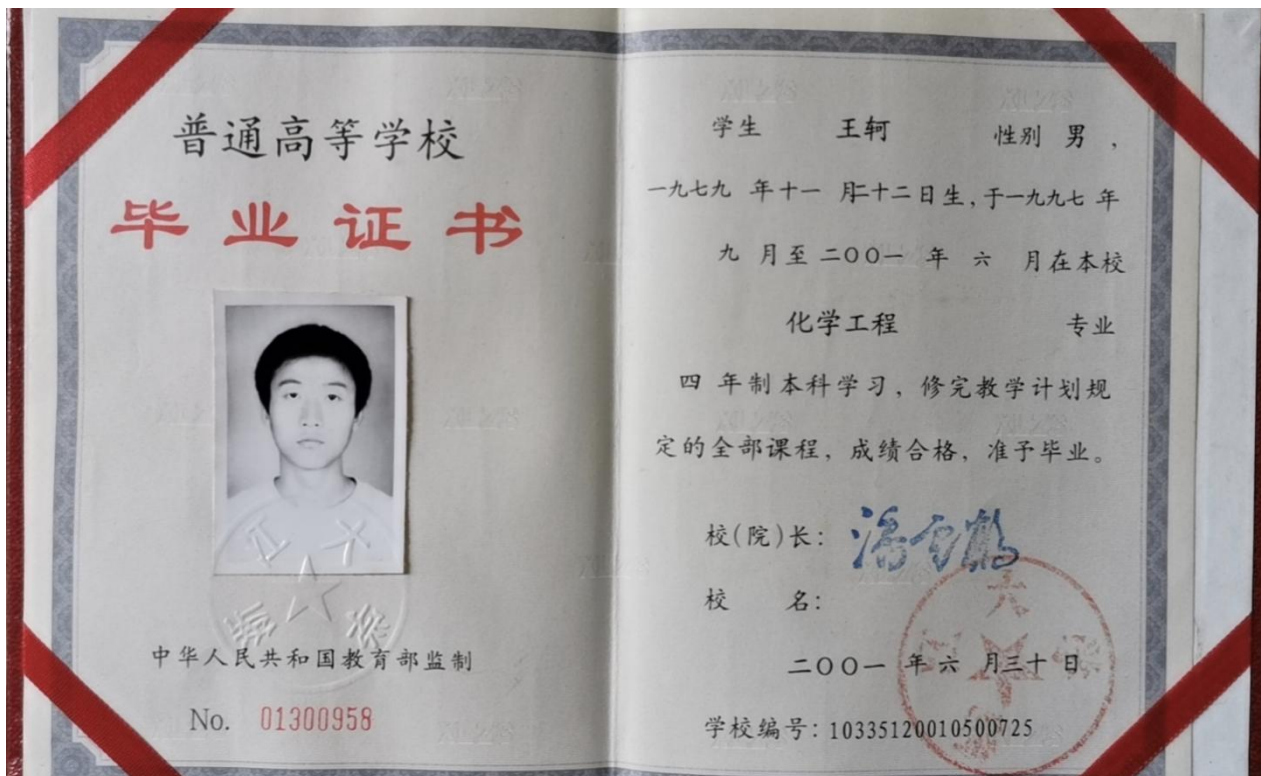 普通高等学校
毕业证书
中华人民共和国教育部监制
No. 01300958
学生 王轲 性别 男，
一九七九 年十一 月二十二日生，于一九九七 年
九 月至 二〇〇一 年 六 月在本校
化学工程 专业
四 年制本科学习，修完教学计划规
定的全部课程，成绩合格，准予毕业。
校(院)长： 潘云鹤
校 名：
二〇〇一 年 六 月三十 日
学校编号：10335120010500725